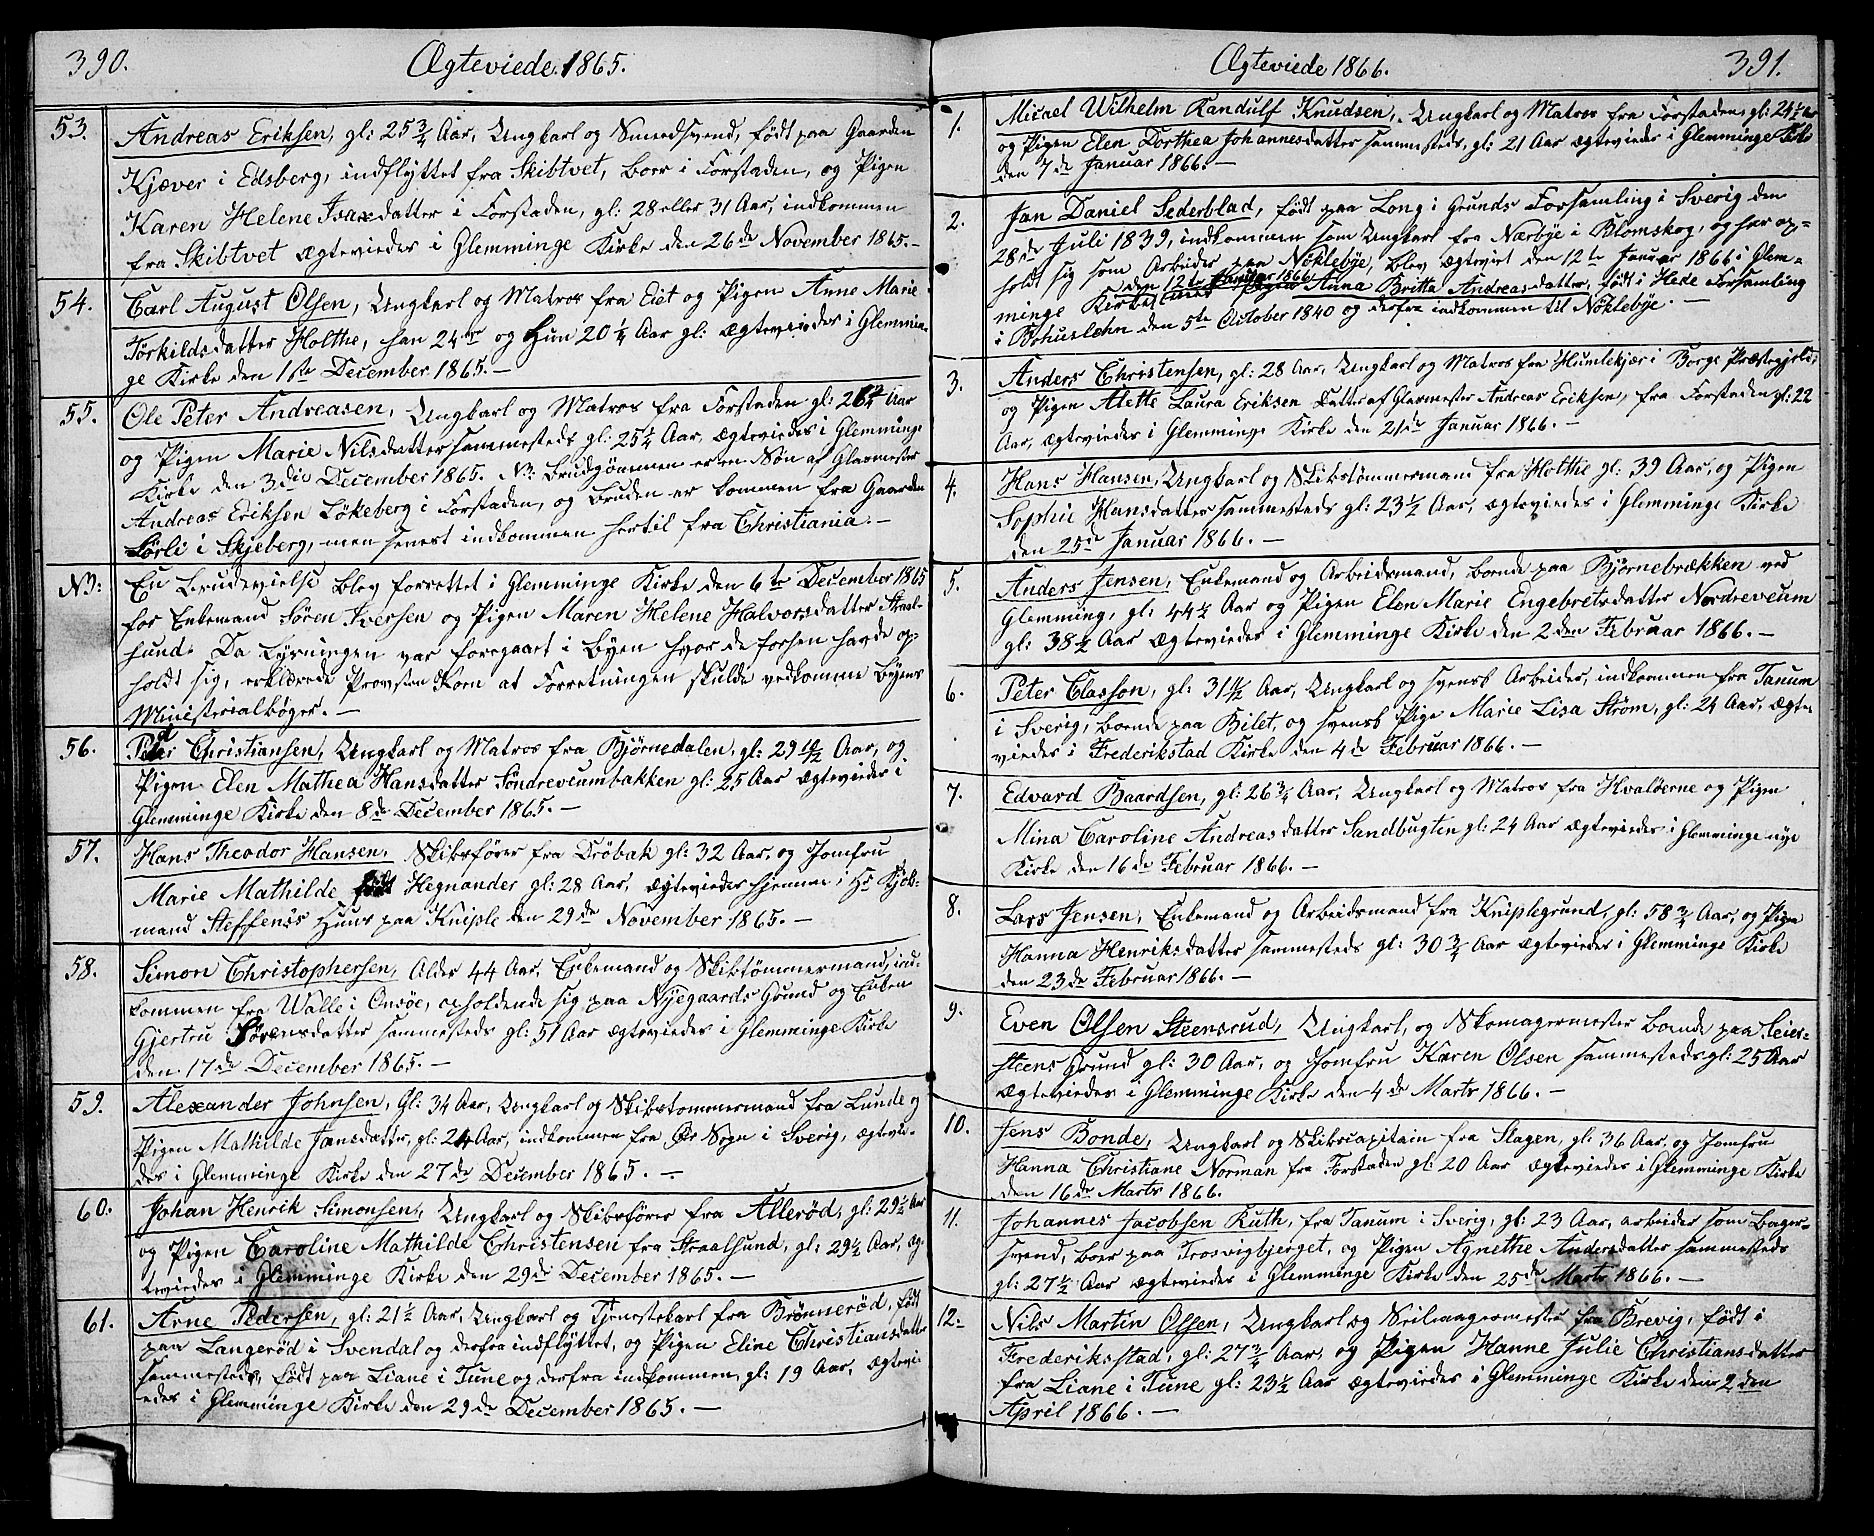 390.
Ægteviede 1865.
53. Andreas Eriksen, gl: 25 3/4 Aar, Ungkarl og Smedsvend, født paa Gaarden
Kjæver i Edsberg, indflyttet fra Skibtvet, boer i Forstaden, og Pigen
Karen Helene Isaxdatter i Forstaden, gl: 28 eller 31 Aar, indkommen
fra Skibtvet ægtevieder i Glemminge Kirke den 26de November 1865.-
54. Carl August Olsen, Ungkarl og Matros fra Eiet og Pigen Anne Marie
Törkildsdatter Holthe, han 24 og Hun 20 1/4 Aar gl: ægtevieder i Glemmin-
ge Kirke den 1ste December 1865.-
55. Ole Peter Andreasen, Ungkarl og Matros fra Forstaden gl: Aar
og Pigen Marie Nilsdatter sammesteds gl: 25 1/4 Aar, ægtevieder i Glemminge
Kirke den 3die December 1865. NB: Brudgommen er en Søn af Glarmester
Andreas Eriksen Lökeberg i Forstaden, og Bruden er kommen fra Gaarden
Sörli i Skjeberg, men senest indkommen hertil fra Christiania.-
NB: En Brudevielse blev forrettet i Glemminge Kirke den 6te December 1865
for Enkemand Sören Iversen og Pigen Maren Helene Halvorsdatter Straal-
sund. Da Lysningen var foregaaet i Byen hvor de forhen havde op-
holdt sig, erklærede Provsten Korn at Forretningen skulde vedkomme Byens
Ministerialbøger.-
56. Peder Christiansen, Ungkarl og Matros fra Bjørnedalen, gl: 29 Aar, og
Pigen Elen Mathea Hansdatter Söndreveumbakken gl: 25 Aar ægtevieder i
Glemminge Kirke den 8de December 1865.-
57. Hans Theodor Hansen, Skibsfører fra Dröbak gl: 32 Aar, og Jomfru
Marie Mathilde Hegnander gl: 28 Aar, ægtevieder hjemme i Hr Kjöb-
mand Steffens Huus paa Kniple den 29de November 1865.-
58. Simon Christophersen, Alder 44 Aar, Enkemand og Skibstømmermand, ind-
kommen fra Walle i Onsøe, opholdende sig paa Nyegaards Grund og Enken
Gjertru Sörensdatter sammesteds gl: 51 Aar ægtevieder i Glemminge Kirke
den 17de December 1865.-
59. Alexander Johnsen, Gl: 34 Aar, Ungkarl og Skibstømmermand fra Lunde og
Pigen Mathilde Jansdatter, gl: 24 Aar, indkommen fra Ör Sogn i Sverig, ægtevie-
des i Glemminge Kirke den 27de December 1865.-
60. Johan Henrik Simonsen, Ungkarl og Skibsfører fra Allerød, gl: 29 1/2 Aar
og Pigen Caroline Mathilde Christensen fra Straalsund, gl: 29 1/2 Aar, æg-
tevieder i Glemminge Kirke den 29de December 1865.-
61. Arne Pedersen, gl: 21 1/2 Aar, Ungkarl og Tjenestekarl fra Brönnerød, født
paa Langerød i Svendal og derfra indflyttet, og Pigen Eline Christiansdatter
sammesteds, født paa Liane i Tune og derfra indkommen, gl: 19 Aar, ægtevi-
edes i Glemminge Kirke den 29de December 1865.-
391.
Ægteviede 1866.
1. Micael Wilhelm Randulf Knudsen, Ungkarl og Matros fra Forstaden, gl: 24 1/2 Aar
og Pigen Elen Dorthea Johannesdatter sammesteds, gl: 21 Aar ægtevieder i Glemminge Kirke
den 7de Januar 1866.-
2. Jan Daniel Sederblad, født paa Long i Grunds Forsamling i Sverig den
28de Juli 1839, indkommen som Ungkarl fra Nærbye i Blomskog, og har op-
holdt sig som Arbeider paa Nöklebye, blev ægteviet den 12te Januar 1866 i Glem-
den 12te Januar 1866
minge Kirke med Pigen Anna Britta Andreasdatter, født i Hede Forsamling
i Bohuslehn den 5te October 1840 og derfra indkommen til Nöklebye.-
3. Anders Christensen, gl: 28 Aar, Ungkarl og Matros fra Humlekjær i Borge Præstegjeld,
og Pigen Alette Laura Eriksen Datter af Glarmester Andreas Eriksen, fra Forstaden gl: 22
Aar, ægtevieder i Glemminge Kirke den 21de Januar 1866.-
4. Hans Hansen, Ungkarl og Skibstömmermand fra Holthe gl: 39 Aar, og Pigen
Sophie Hansdatter sammesteds gl: 23 1/2 Aar, ægtevieder i Glemminge Kirke
den 25de Januar 1866.-
5. Anders Jensen, Enkemand og Arbeidsmand, boende paa Bjørnebrækken ved
Glemming, gl: 44 1/2 Aar og Pigen Elen Marie Engebretsdatter Nordreveum
gl: 38 1/2 Aar ægtevieder i Glemminge Kirke den 2den Februar 1866.-
6. Peter Classon, gl: 31 Aar, Ungkarl og svensk Arbeider, indkommen fra Tanum
i Sverig, boende paa Bilet, og svensk Pige Marie Lisa Strøm, gl: 24 Aar, ægte-
vieder i Frederikstad Kirke den 4de Februar 1866.-
7. Edvard Baardsen, gl: 26 3/4 Aar, Ungkarl og Matros fra Hvalöerne og Pigen
Mina Caroline Andreasdatter Sandbugten gl: 24 Aar ægtevieder i Glemminge nye
Kirke den 16de Februar 1866.-
8. Lars Jensen, Enkemand og Arbeidsmand fra Kniplegrund, gl: 58 3/4 Aar, og Pigen
Hanna Henriksdatter sammesteds gl: 30 3/4 Aar ægtevieder i Glemminge Kirke
den 23de Februar 1866.-
9. Even Olsen Steensrud, Ungkarl, og Skomagermester boende paa Leier-
steens Grund gl: 30 Aar, og Jomfru Karen Olsen sammesteds gl: 25 Aar
ægtevieder i Glemminge Kirke den 4de Marts 1866.-
10. Jens Bonde, Ungkarl og Skibscapitain fra Slagen, gl: 36 Aar, og Jomfru
Hanna Christiane Norman fra Forstaden gl: 20 Aar ægtevieder i Glemminge Kirke
den 16de Marts 1866.
11. Johannes Jacobsen Ruth, fra Tanum i Sverig, gl: 23 Aar, arbeider som Bager-
svend, boer paa Trosvigbjerget, og Pigen Agnethe Andersdatter sammesteds
gl: 27 1/2 Aar ægtevieder i Glemminge Kirke den 25de Marts 1866.-
12. Nils Martin Olsen, Ungkarl og Seilmagermester fra Brevig, født i
Frederiksstad, gl: 27 3/4 Aar, og Pigen Hanne Julie Christiansdatter
fra Liane i Tune gl: 23 1/2 Aar ægtevieder i Glemminge Kirke den 2den
April 1866.-